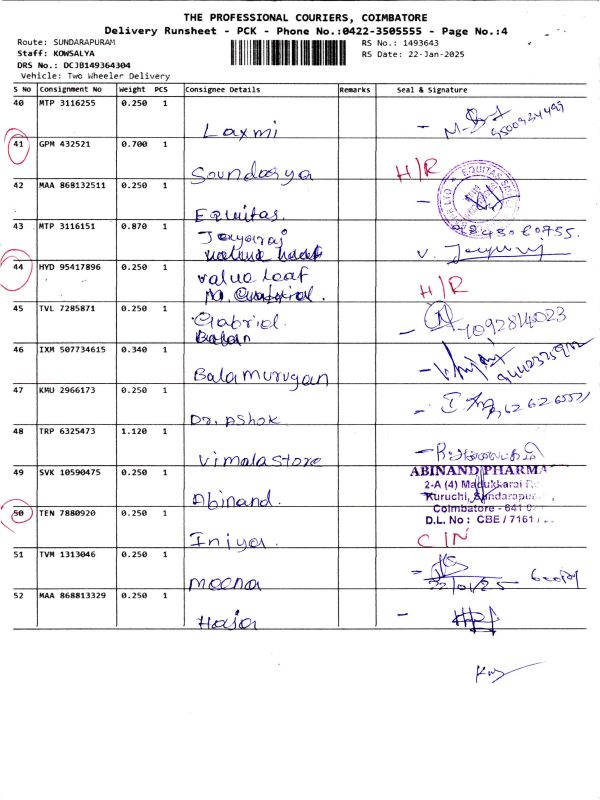 THE PROFESSIONAL COURIERS, COIMBATORE
Delivery Runsheet - PCK - Phone No.:0422-3505555 - Page No.:4
Route: SUNDARAPURAM
RS No.: 1493643
Staff: KOWSALYA
RS Date: 22-Jan-2025
DRS No.: DCJB149364304
Vehicle: Two Wheeler Delivery
S No Consignment No Weight PCS Consignee Details Remarks Seal & Signature
40 MTP 3116255 0.250 1 Laxmi
41 GPM 432521 0.700 1 Soundarya H/R
42 MAA 868132511 0.250 1 Equitas.
EQUITAS
43 MTP 3116151 0.870 1 Jeyaraj
44 HYD 95417896 0.250 1 value leaf H/R
45 TVL 7285871 0.250 1 Gabriel.
7092814023
46 IXM 507734615 0.340 1 Balamurugan
47 KMU 2966173 0.250 1 Dr. Ashok
48 TRP 6325473 1.120 1 Vimala Store
49 SVK 10590475 0.250 1 Abinand.
ABINAND PHARMA
2-A (4) Madukkarai
Kuruchi, Sundarapur
Coimbatore - 641
D.L. No : CBE / 7161 /
50 TEN 7880920 0.250 1 Iniya. C/N
51 TVM 1313046 0.250 1 Meena
22/01/25
52 MAA 868813329 0.250 1 Haja